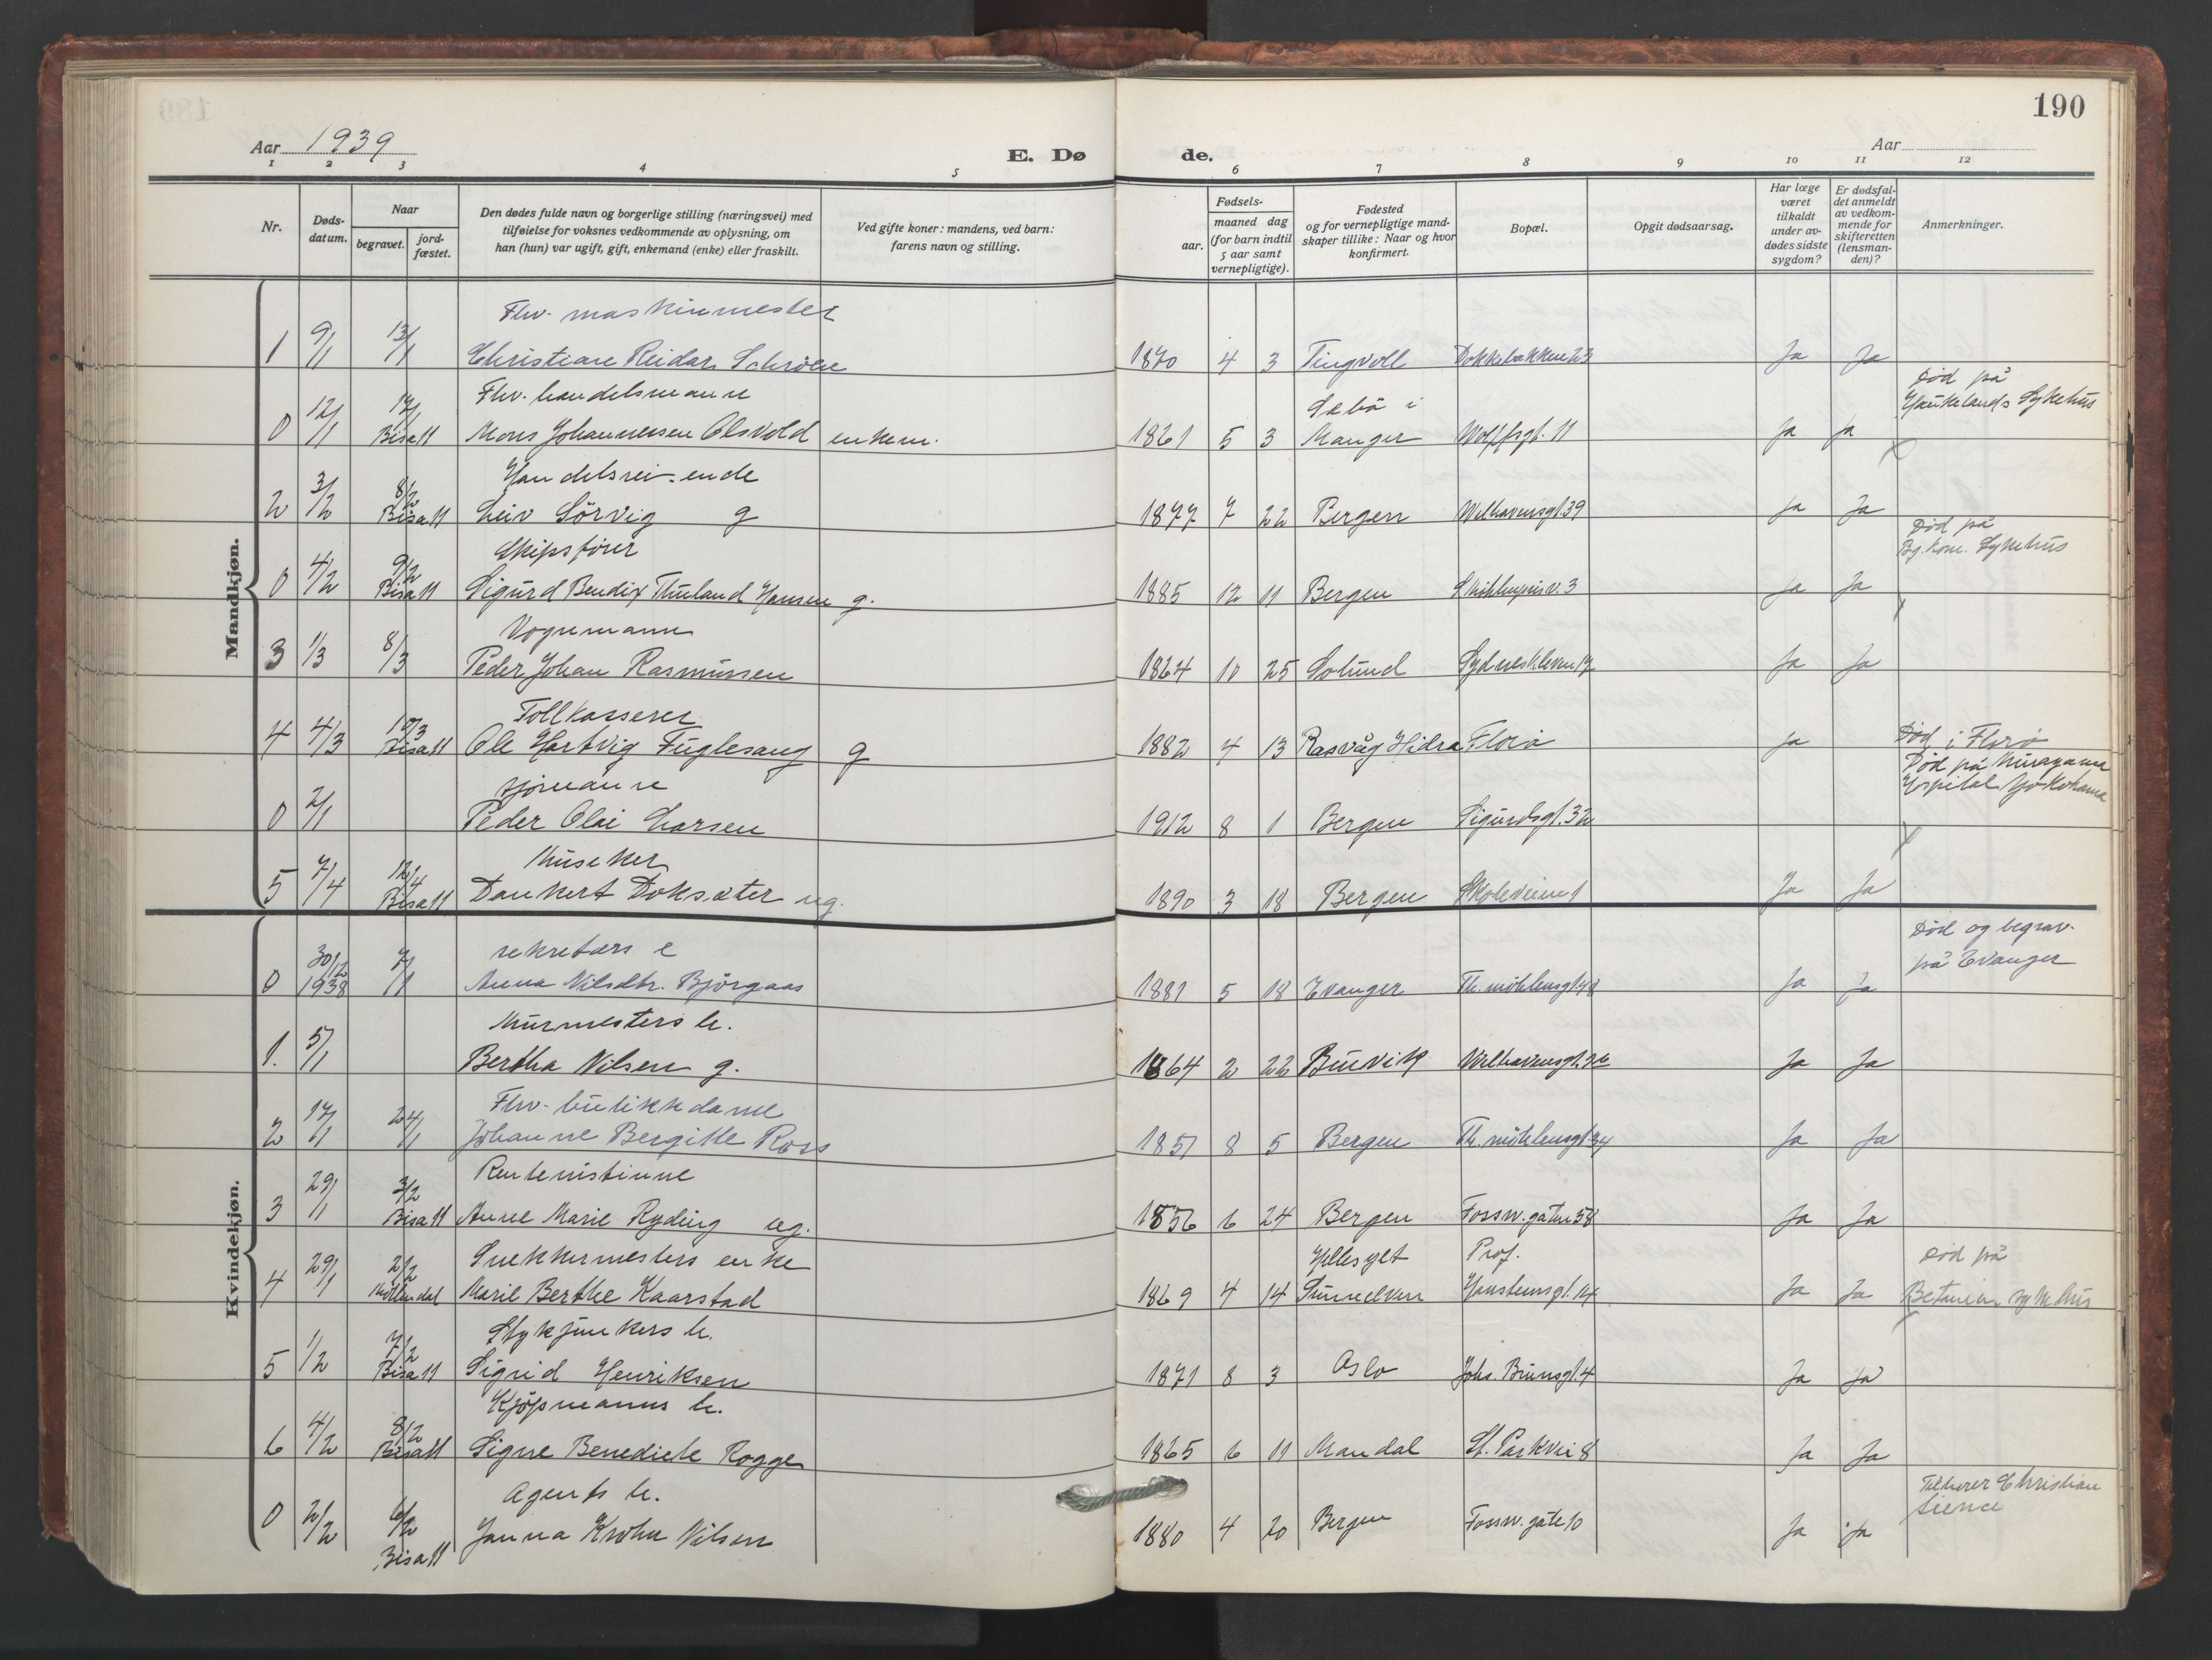 190
Aar 1939
E. Dø
de.
Aar
1 2 3 4 5 6 7 8 9 10 11 12
Nr.
Døds-
datum.
Naar
begravet.
jord-
fæstet.
Den dødes fulde navn og borgerlige stilling (næringsvei) med
tilføielse for voksnes vedkommende av oplysning, om
han (hun) var ugift, gift, enkemand (enke) eller fraskilt.
Ved gifte koner: mandens, ved barn:
farens navn og stilling.
Fødsels-
aar.
maaned dag
(for barn indtil
5 aar samt
vernepligtige).
Fødested
og for vernepligtige mand-
skaper tillike: Naar og hvor
konfirmert.
Bopæl.
Opgit dødsaarsag.
Har læge
været
tilkaldt
under av-
dødes sidste
sygdom?
Er dødsfal-
det anmeldt
av vedkom-
mende for
skifteretten
(lensman-
den)?
Anmerkninger.
Mandkjøn.
Fhv. maskinmester
1 9/1 13/1 Christian Reidar Schröen 1870 4 3 Tingvoll Dokkebakken 23 Ja Ja
Fhv. handelsmann Sæbö i Död på
Haukelands Sykehus
0 12/1 17/1 Bisatt Mons Johannessen Olsvold enkem. 1861 5 3 Manger Wolffsgt. 11 Ja Ja
Handelsreisende
2 3/2 8/2 Bisatt Leiv Sörvig g 1877 7 22 Bergen Welhavensgt. 39 Ja Ja
Skipsförer Död på
Bg. kom. Sykehus
0 4/2 9/2 Bisatt Sigurd Bendix Thuland Hansen g. 1885 12 11 Bergen 3 Ja Ja
Vognmann
3 1/3 8/3 Peder Johan Rasmussen 1864 10 25 Solund Sydneskleven 17 Ja Ja
Tollkasserer
4 4/3 10/3 Bisatt Ole Hartvig Fuglesang g 1882 4 13 Rasvåg Hidra Florö Ja Död i Florö
Sjömann Död på
Hospital Yokohama
0 2/1 Peder Olai Larsen 1912 8 1 Bergen Sigurdsgt. 32
Musiker
5 7/4 12/4 Bisatt Dankert Doksæter ug. 1890 3 18 Bergen Skoleveien 1 Ja Ja
Kvindekjøn.
sekretærs e Död og begrav.
på Evanger
0 30/12 1938 7/1 Anna Nilsdtr. Björgaas 1881 5 18 Evanger Th. möhlensgt. 48 Ja Ja
Murmesters h.
1. 5/1 Bertha Nilsen g. 1864 2 22 Buvik Welhavensgt. Ja Ja
Fhv. butikkdame
2 17/1 24/1 Johanne Bergitte Ross 1851 8 5 Bergen Th. möhlensgt. 34 Ja Ja
Rentenistinne
3 29/1 3/2 Bisatt Anne Marie Ryding ug. 1856 6 24 Bergen Fossw. gaten 58 Ja Ja
Snekkermesters enke Hellesylt Prof. Död på
4 29/1 2/2 Möllendal Marie Berthe Kaarstad 1869 4 14 Sunnelven Hansteensgt. 14 Ja Ja Betanien sykehus
Stykjunkers h.
5 1/2 7/2 Bisatt Sigrid Henriksen 1871 8 3 Oslo Johs. Brunsgt. 4 Ja Ja
Kjöpmanns h.
6 4/2 8/2 Bisatt Signe Benedicte Rogge 1865 6 11 Mandal St. Parkvei 8 Ja Ja
Agents h. Tilhörer Christian
Sience
0 2/2 6/2 Bisatt Janna Krohn Nilsen 1880 4 20 Bergen Fossw. gate 10 Ja Ja